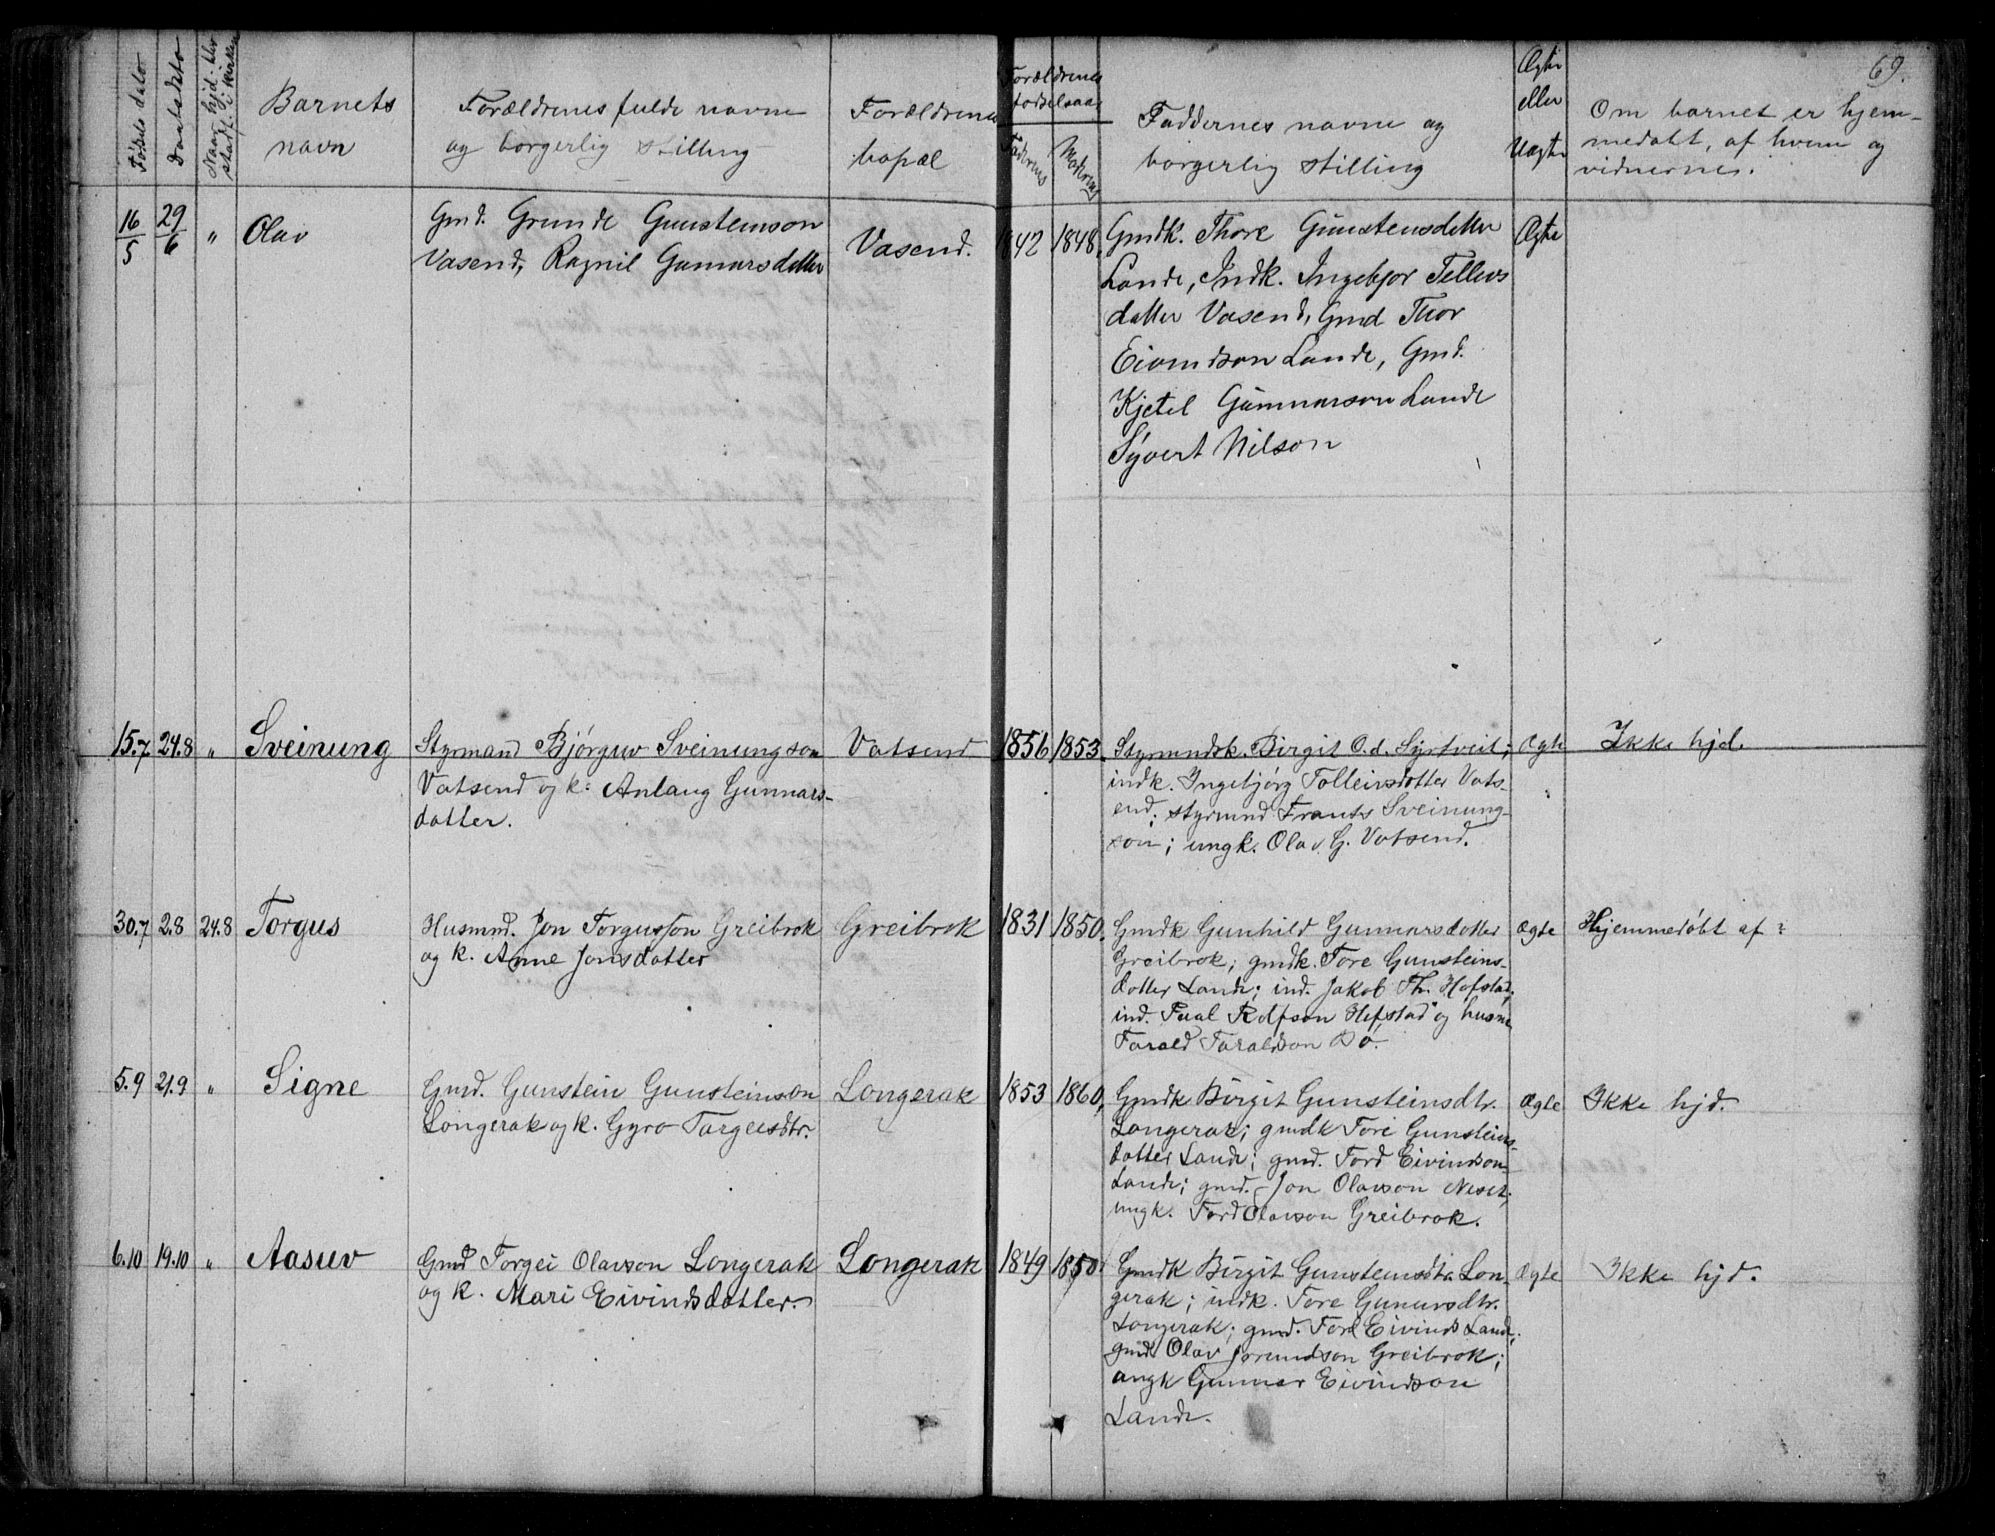 69.
Fødsels dato
Daabsdato
Naar hjd. blev stadf. i kirken
Barnets navn
Forældrenes fulde navne og borgerlig stilling
Forældrenes bopæl
Forældrenes fødselsaar
Faderens
Moderens
Faddernes navne og borgerlig stilling
Ægte eller Uægte
Om barnet er hjemmedøbt, af hvem og vidnernes.
16/5 29/6 " Olav
Gmd. Grunde Gunsteinson
Vasend, Ragnil Gunnarsdatter
Vasend.
1842 1848.
Gmdk. Thore Gunstensdatter
Lande, Indk. Ingebjor Tellevs
datter Vasend, Gmd Thor
Eivindson Lande, Gmd.
Kjetel Gunnarson Lande
Syvert Nilson
Ægte
15.7 24.8 " Sveinung
Styrmand Bjørguv Sveinungson
Vatsend og k: Anlaug Gunnars-
datter.
Vatsend
1856 1853.
Styrmndsk. Birgit O.d. Syrtveit;
indk. Ingebjørg Tolleivsdotter Vats-
end; styrmnd Frants Sveinung-
son; ungk. Olav G. Vatsend.
Ægte
Ikke hjd.
30.7 2.8 24.8 Torgus
Husmnd. Jon Torgusson Greibrok
og k. Anne Jonsdotter
Greibrok
1831 1850.
Gmdk Gunhild Gunnarsdotter
Greibrok; gmdk. Tore Gunsteins-
dotter Lande; ind. Jakob Th. Hofstad;
ind. Paal Rolfson Hefstad og husm
Tarald Taraldson Bø.
Ægte
Hjemmedøbt af ?
5.9 21.9 " Signe
Gmd. Gunstein Gunsteinson
Longerak og k. Gyro Targeisdtr.
Longerak
1853 1860,
Gmdk Birgit Gunsteinsdtr.
Longerak; gmdk Tore Gunsteins-
dotter Lande; gmd. Tord Eivindson
Lande; gmd. Jon Olavson Neset;
ungk. Tord Olavson Greibrok.
Ægte
Ikke hjd.
6.10 19.10 " Aasuv
Gmd Torgei Olavson Longerak
og k. Mari Eivindsdotter.
Longerak
1849 1850.
Gmdk Birgit Gunsteinsdtr. Lon-
gerak; indk. Tore Gunnarsdtr.
Longerak; gmd. Tord Eivinds Lande;
gmd. Olav Jorundson Greibrok;
ungk Gunnar Eivindson
Lande.
Ægte
Ikke hjd.